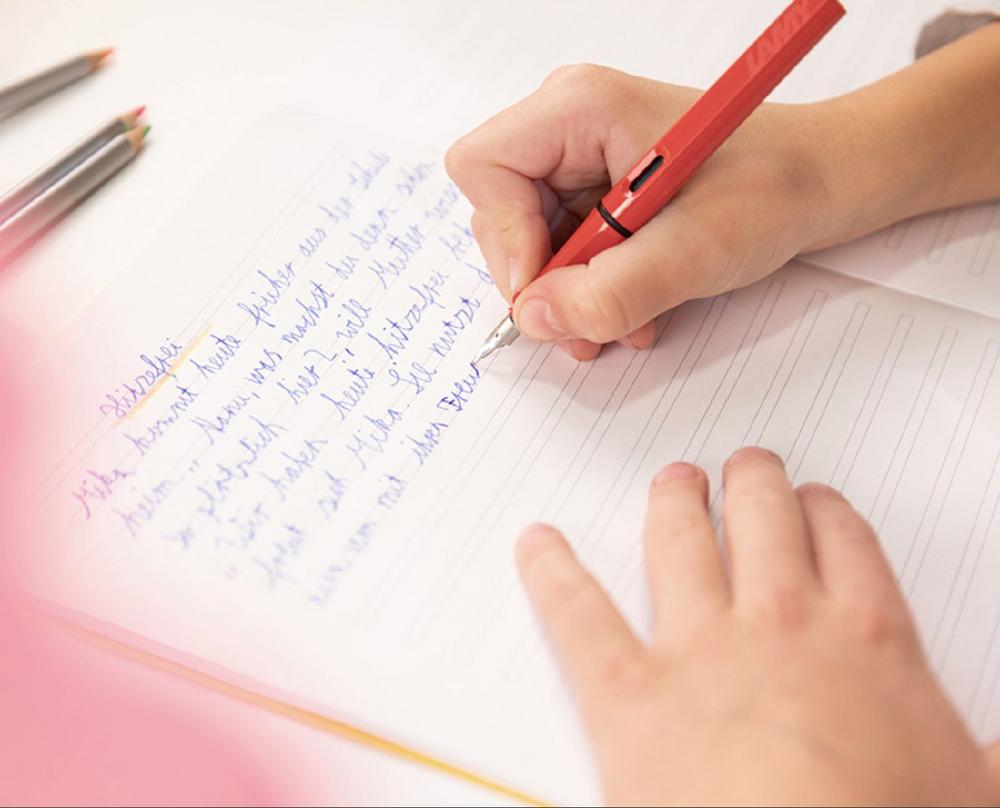 LAMY
Hitzefrei
Mika kommt heute früher aus der Schule
heim. " Nanu, was machst du denn schon
so plötzlich hier? will Mutter
" Wir haben heute hitzefrei
freut sich Mika. Sie nutzt
nun mit ihren Freun